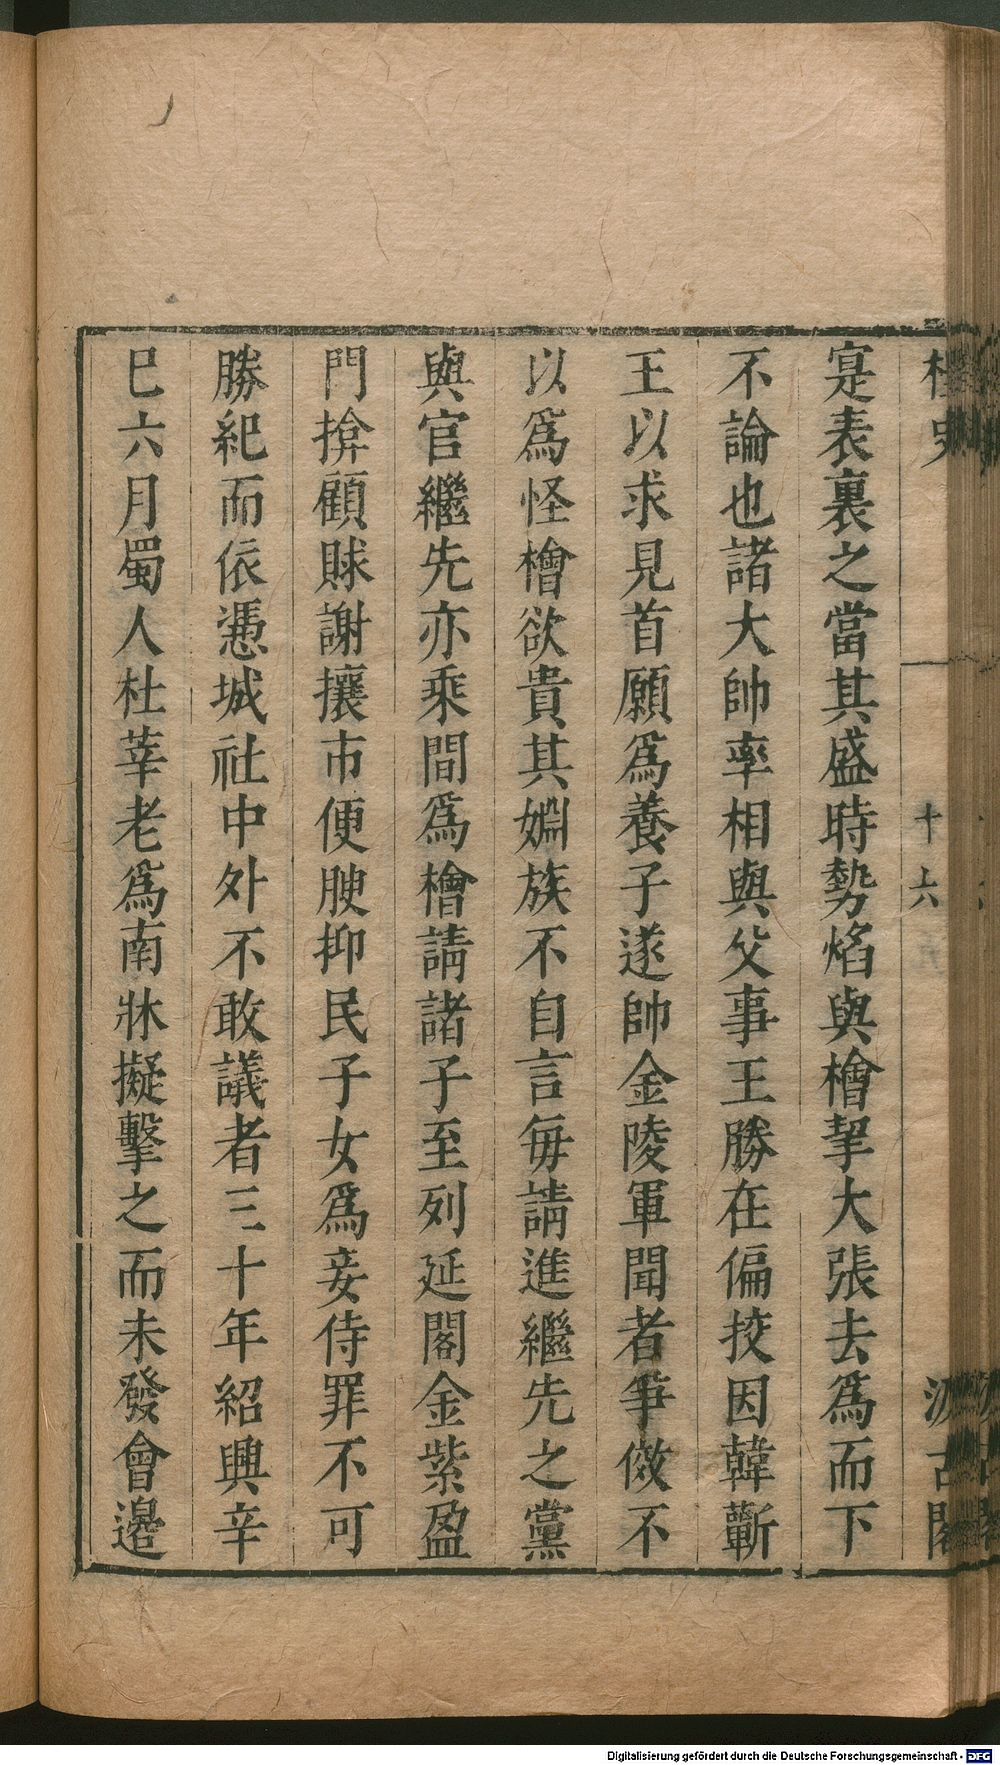 桯史
十六
汲古閣
寔表裏之當其盛時勢焰與檜挈大張去爲而下
不論也諸大帥率相與父事王勝在偏挍因韓蘄
王以求見首願爲養子遂帥金陵軍聞者爭傚不
以爲怪檜欲貴其婣族不自言毎請進繼先之黨
與官繼先亦乘間爲檜請諸子至列延閣金紫盈
門揜顧賕謝攘市便腴抑民子女爲妾侍罪不可
勝紀而依憑城社中外不敢議者三十年紹興辛
巳六月蜀人杜莘老爲南牀擬擊之而未發會邉
Digitalisierung gefördert durch die Deutsche Forschungsgemeinschaft - DFG